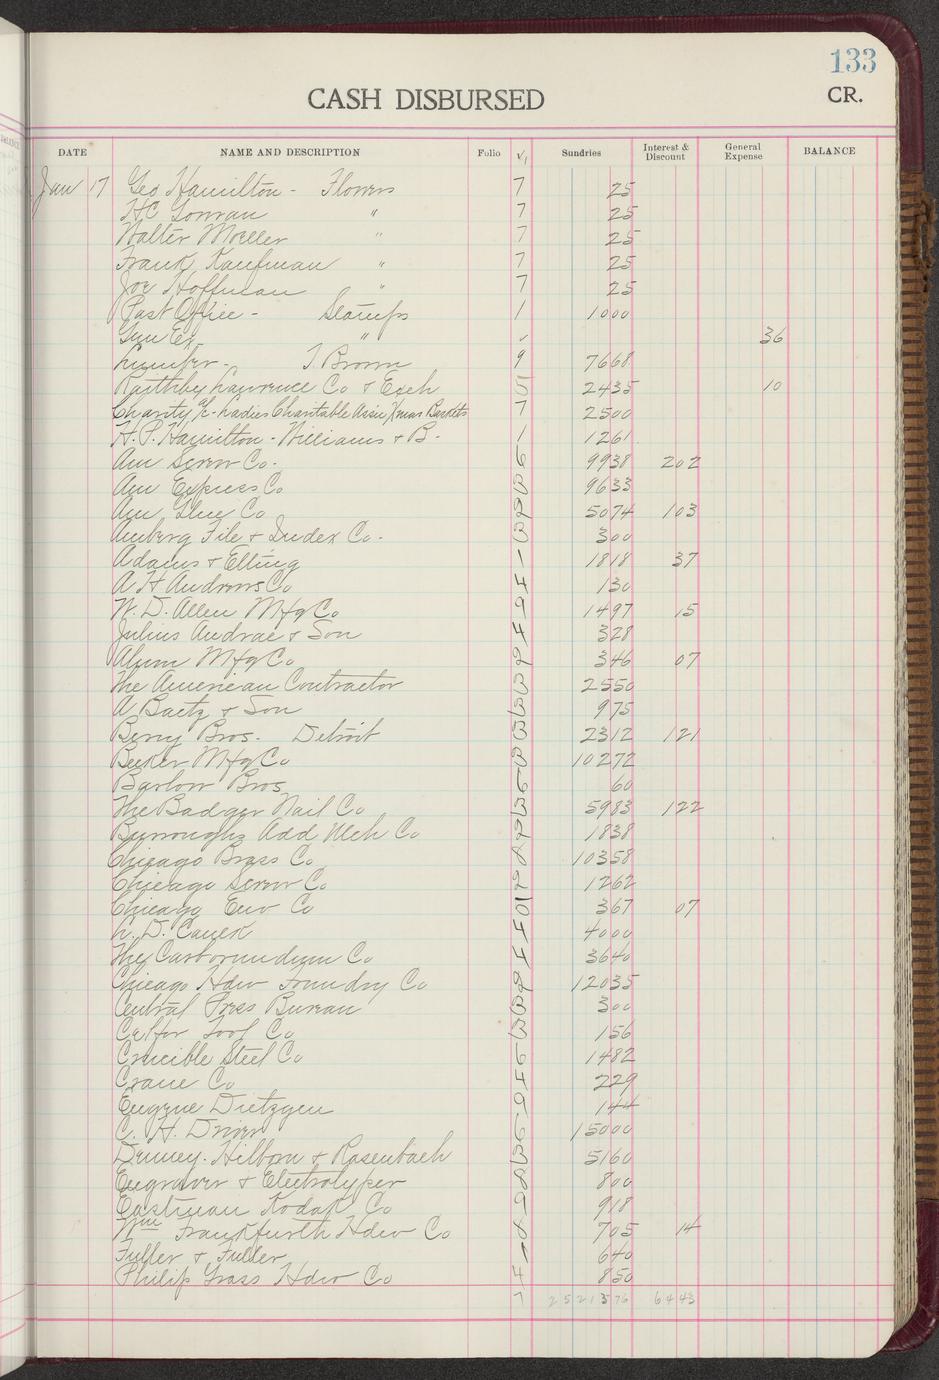 133
CASH DISBURSED CR.
DATE NAME AND DESCRIPTION Folio √ Sundries Interest & Discount General Expense BALANCE
Jan 17 Geo Hamilton - Flowers 7 25
HC " 7 25
Walter Moeller " 7 25
Frank Kaufman " 7 25
Joe Hoffman " 7 25
Post Office - Stamps 1 1000
Gen Ex " " 36
Lumber - J. Brown 9 7668
Raithby Lawrence Co & Exch 5 2435 10
Charity a/c - Ladies Charitable Assn Xmas Baskets 7 2500
H. P. Hamilton - Williams & B. 1 1261
Am Screw Co. 6 9938 202
Am Express Co 3 9633
Am Glue Co 9 5074 103
Amberg File & Index Co. 3 300
Adams & Elting 1 1818 37
A H Andrews Co 4 130
W. D. Allen Mfg Co 9 1497 15
Julius Andrae & Son 4 328
Mfg Co 9 346 07
The American Contractor 3 2550
A Baetz & Son 3 975
Berry Bros. Detroit 3 2312 121
Becker Mfg Co 8 10272
Barlow Bros 6 60
The Badger Nail Co 3 5983 122
Burroughs Add Mch Co 9 1838
Chicago Brass Co 8 10358
Chicago Screw Co 9 1262
Chicago Env Co 01 367 07
L. D. Caulk 4 4000
The Carborundum Co 4 3640
Chicago Hdw Foundry Co 9 12035
Central Press Bureau 3 300
Tool Co 3 156
Crucible Steel Co 6 1482
Crane Co 4 229
Eugene Dietzgen 9 144
C. H. Driver 6 15000
Denney. Hilborn & Rosenbach 3 5160
Engraver & Electrotyper 8 800
Eastman Kodak Co 9 918
Wm Frankfurth Hdw Co 8 705 14
Fuller & Fuller 1 640
Philip Gross Hdw Co 4 850
7 2521576 6443